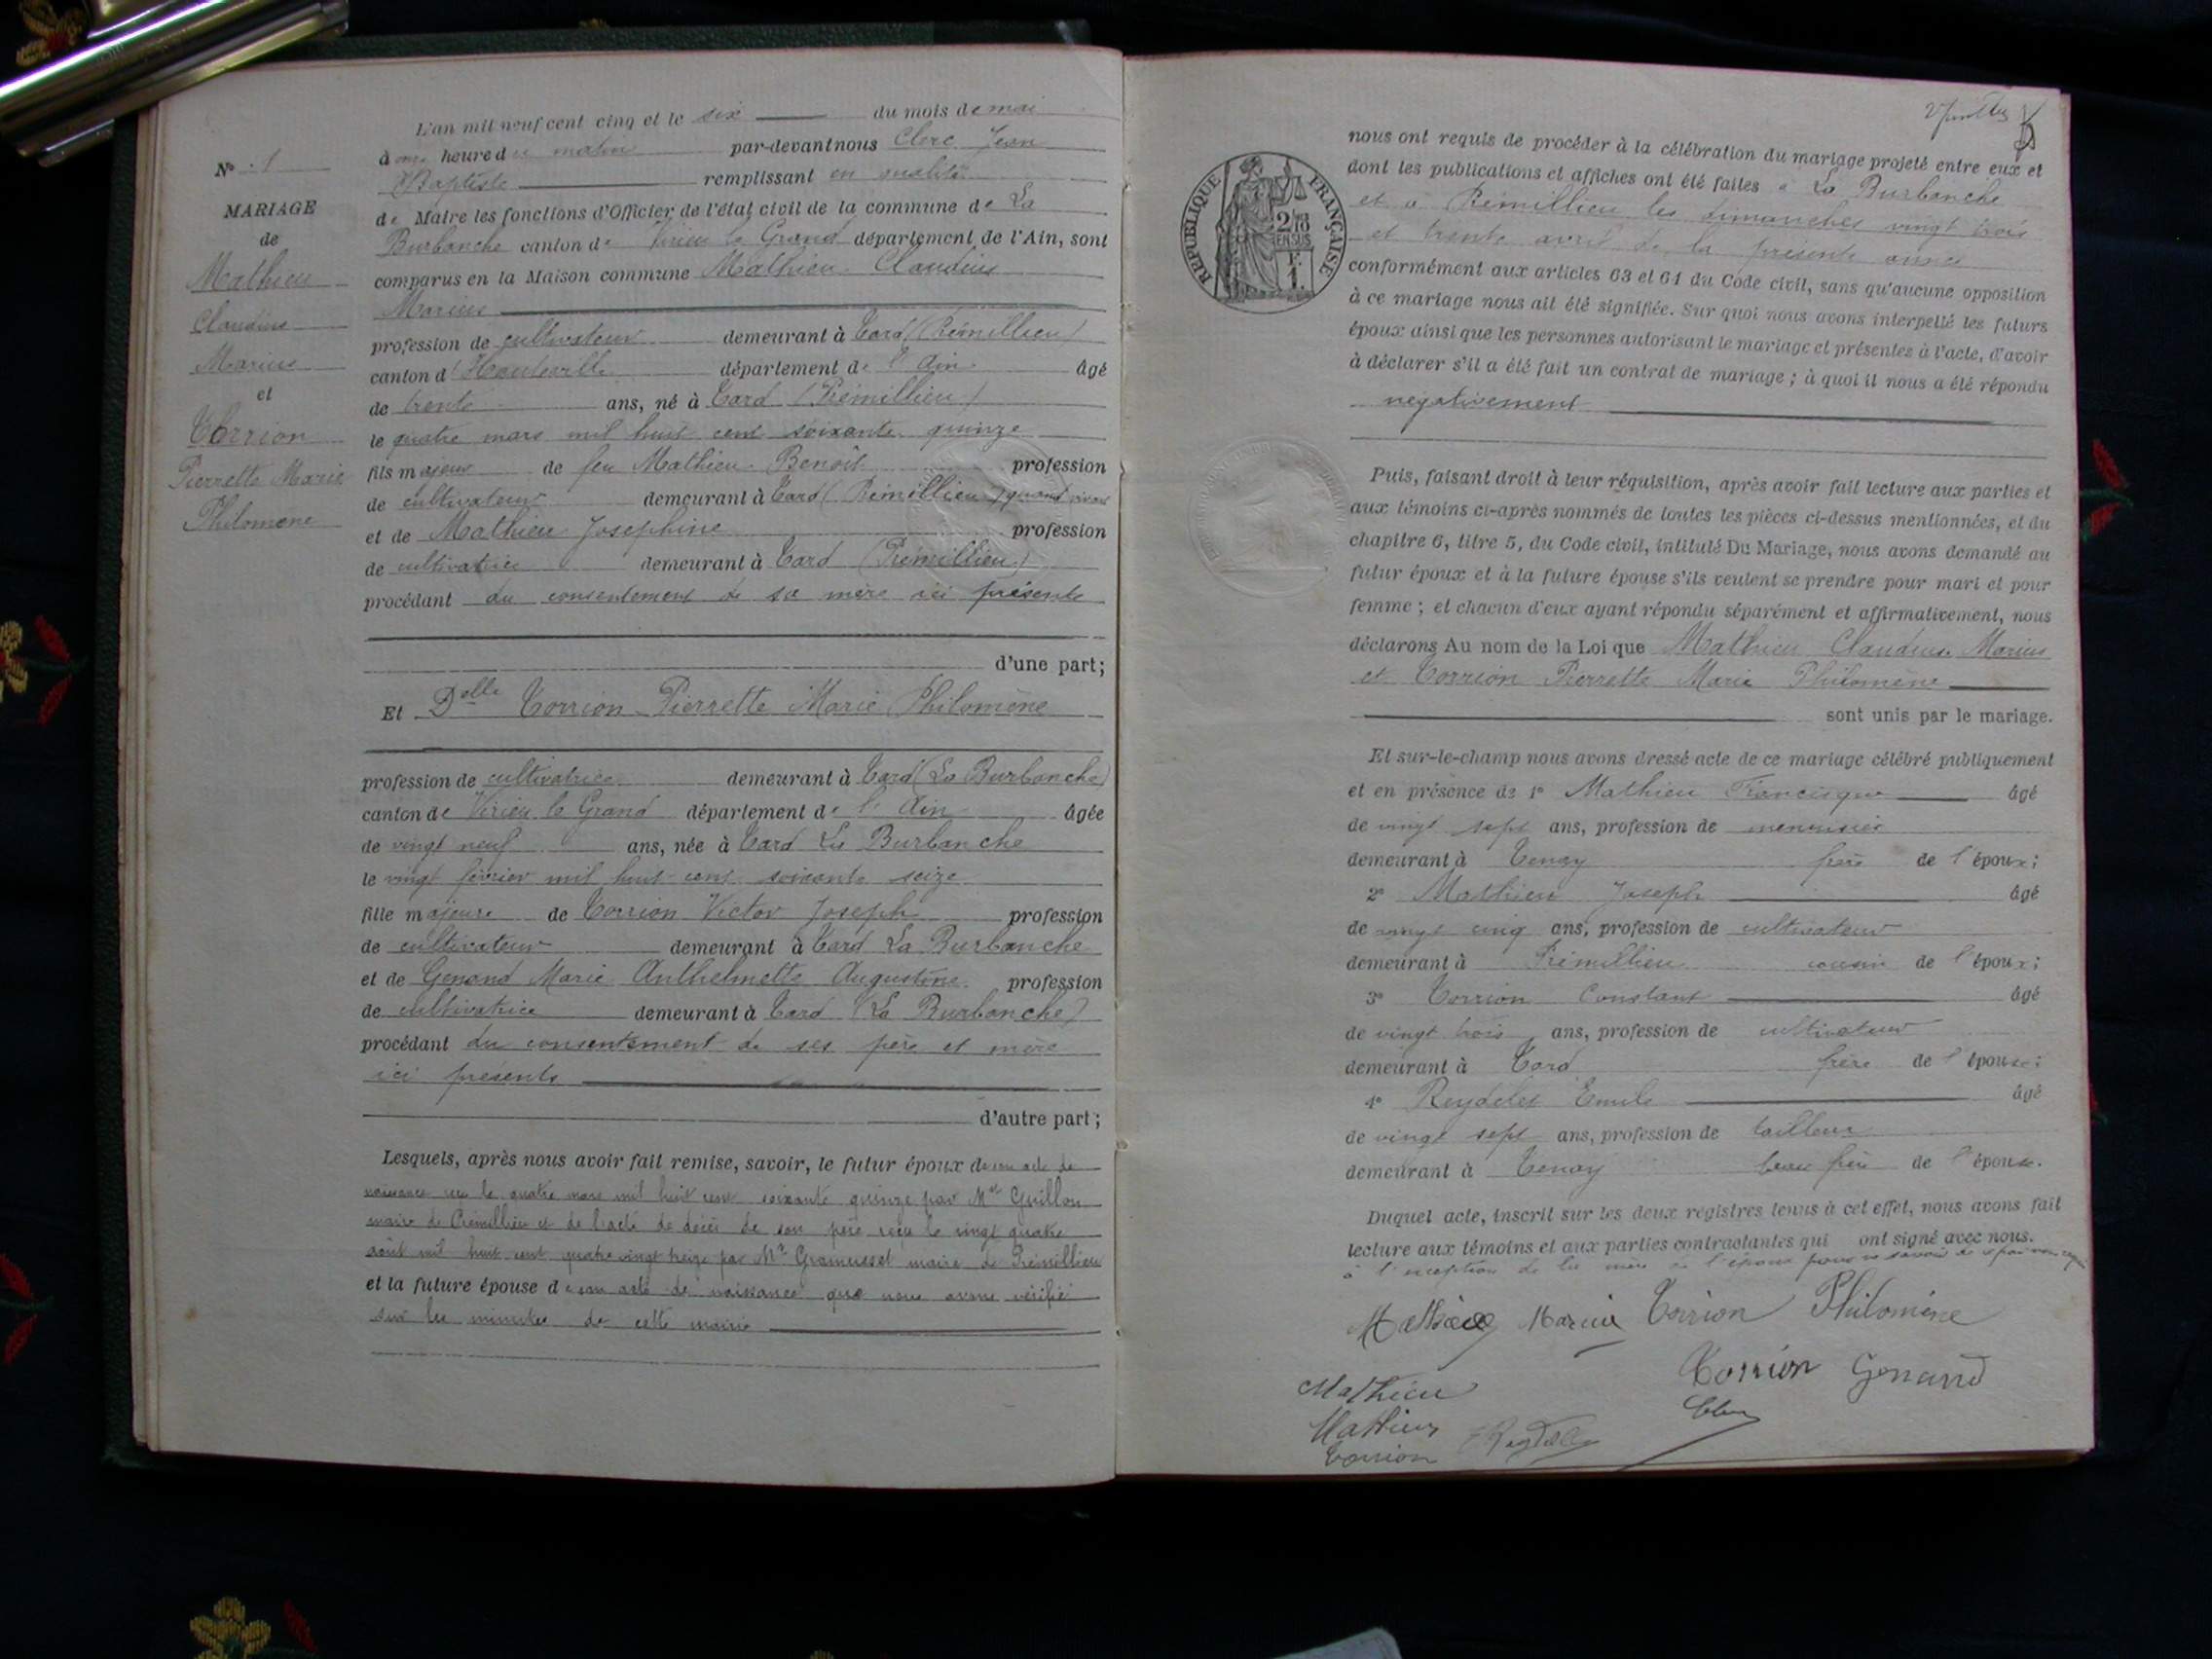 N° 1
MARIAGE
de
Mathieu
Claudius
Marius
et
Torrion
Pierrette Marie
Philomène
L'an mil neuf cent cinq et le six du mois de mai
à onze heure du matin par-devant nous Clerc Jean
Baptiste remplissant en qualité
de Maire les fonctions d'Officier de l'état civil de la commune de La
Burbanche canton de Virieu le Grand département de l'Ain, sont
comparus en la Maison commune Mathieu Claudius
Marius
profession de cultivateur demeurant à Tard (Prémillieu)
canton d'Hauteville département de l'Ain âgé
de trente ans, né à Tard (Prémillieu)
le quatre mars mil huit cent soixante quinze
fils majeur de feu Mathieu Benoît profession
de cultivateur demeurant à Tard (Prémillieu) quand vivait
et de Mathieu Josephine profession
de cultivatrice demeurant à Tard (Prémillieu)
procédant du consentement de sa mère ici présente
d'une part;
Et Delle Torrion Pierrette Marie Philomène
profession de cultivatrice demeurant à Tard (La Burbanche)
canton de Virieu le Grand département de l'Ain âgée
de vingt neuf ans, née à Tard La Burbanche
le vingt février mil huit cent soixante seize
fille majeure de Torrion Victor Joseph profession
de cultivateur demeurant à Tard La Burbanche
et de Genand Marie Anthelmette Augustine profession
de cultivatrice demeurant à Tard (La Burbanche)
procédant du consentement de ses père et mère
ici presents
d'autre part;
Lesquels, après nous avoir fait remise, savoir, le futur époux de son acte de
naissance reçu le quatre mars mil huit cent soixante quinze par Mr Guillon
maire de Prémillieu et de l'acte de décès de son père reçu le vingt quatre
août mil huit cent quatre vingt treize par Mr Gramusset maire de Prémillieu
et la future épouse de son acte de naissance que nous avons vérifié
sur les minutes de cette mairie
nous ont requis de procéder à la célébration du mariage projeté entre eux et
dont les publications et affiches ont été faites à La Burbanche
et à Prémillieu les dimanches vingt trois
et trente avril de la présente année
conformément aux articles 63 et 64 du Code civil, sans qu'aucune opposition
à ce mariage nous ait été signifiée. Sur quoi nous avons interpellé les futurs
époux ainsi que les personnes autorisant le mariage et présentes à l'acte, d'avoir
à déclarer s'il a été fait un contrat de mariage; à quoi il nous a été répondu
negativement
RÉPUBLIQUE FRANÇAISE
2/10
EN SUS
F.
1.
Puis, faisant droit à leur réquisition, après avoir fait lecture aux parties et
aux témoins ci-après nommés de toutes les pièces ci-dessus mentionnées, et du
chapitre 6, titre 5, du Code civil, intitulé Du Mariage, nous avons demandé au
futur époux et à la future épouse s'ils veulent se prendre pour mari et pour
femme; et chacun d'eux ayant répondu séparément et affirmativement, nous
déclarons Au nom de la Loi que Mathieu Claudius Marius
et Torrion Pierrette Marie Philomène
sont unis par le mariage.
Et sur-le-champ nous avons dressé acte de ce mariage célébré publiquement
et en présence de 1° Mathieu Francisque âgé
de vingt sept ans, profession de menuisier
demeurant à Tenay frère de l'époux;
2° Mathieu Joseph âgé
de vingt cinq ans, profession de cultivateur
demeurant à Prémillieu cousin de l'époux;
3° Torrion Constant âgé
de vingt trois ans, profession de cultivateur
demeurant à Tard frère de l'épouse;
4° Reydelet Emile âgé
de vingt sept ans, profession de tailleur
demeurant à Tenay beau frère de l'épouse.
Duquel acte, inscrit sur les deux registres tenus à cet effet, nous avons fait
lecture aux témoins et aux parties contractantes qui ont signé avec nous.
à l'exception de la mère de l'époux pour ne savoir de ce
Mathieu Marius Torrion Philomène
Mathieu Torrion Genand
Mathieu Reydellet Clerc
Torrion